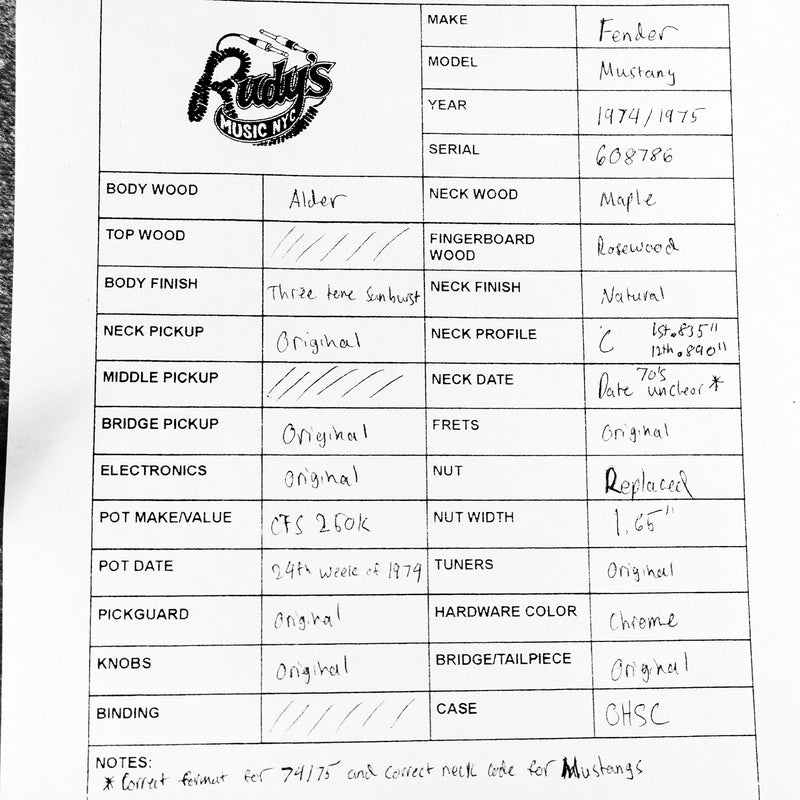 Rudy's
MUSIC NYC
MAKE Fender
MODEL Mustang
YEAR 1974/1975
SERIAL 608786
BODY WOOD Alder NECK WOOD Maple
TOP WOOD ////// FINGERBOARD WOOD Rosewood
BODY FINISH Three tone Sunburst NECK FINISH Natural
NECK PICKUP Original NECK PROFILE C 1st .835" 12th .890"
MIDDLE PICKUP /////// NECK DATE 70's Date unclear *
BRIDGE PICKUP Original FRETS Original
ELECTRONICS Original NUT Replaced
POT MAKE/VALUE CTS 250K NUT WIDTH 1.65"
POT DATE 24th week of 1974 TUNERS Original
PICKGUARD Original HARDWARE COLOR Chrome
KNOBS Original BRIDGE/TAILPIECE Original
BINDING ////// CASE OHSC
NOTES:
* Correct format for 74/75 and correct neck code for Mustangs